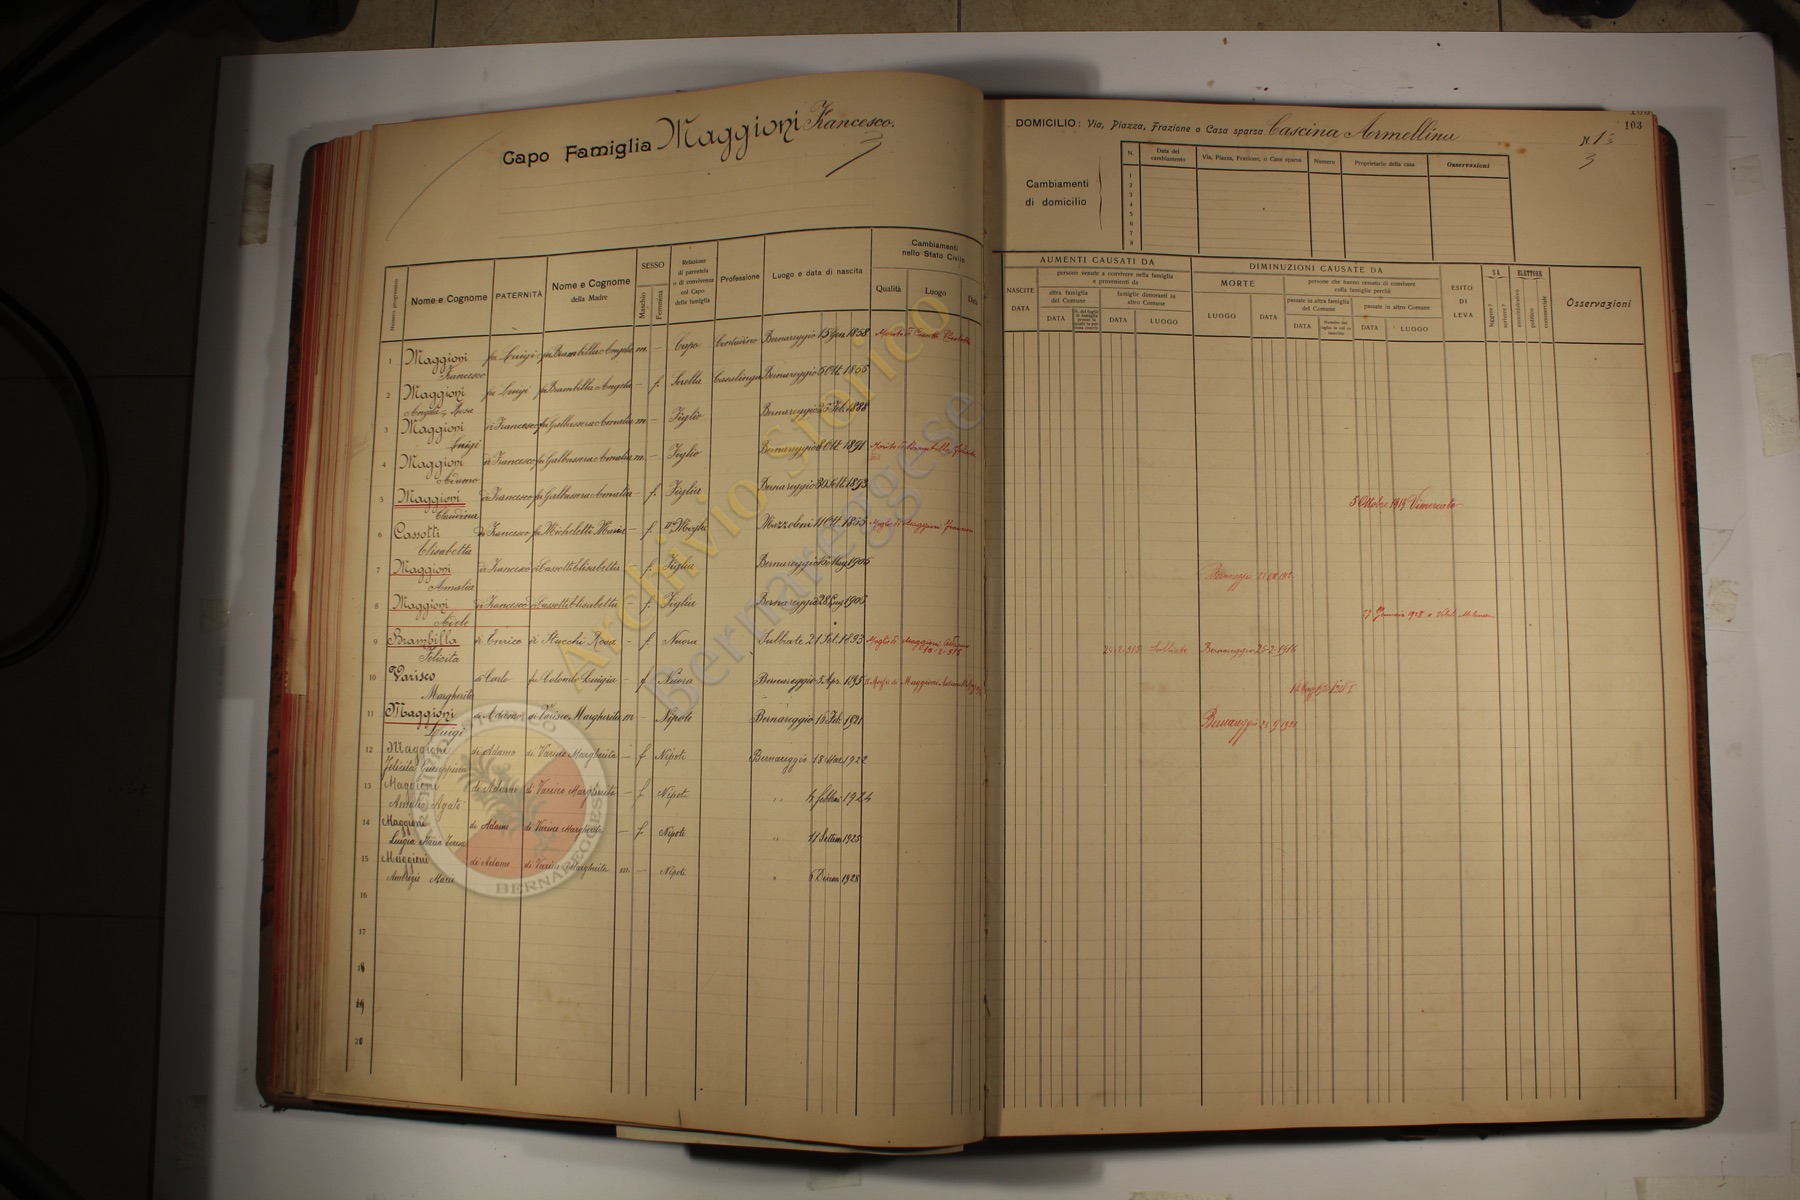 Capo Famiglia Maggioni Francesco.
3
DOMICILIO: Via, Piazza, Frazione o Casa sparsa Cascina Armellina
N. 13
3
103
Cambiamenti
di domicilio
N. Data del cambiamento Via, Piazza, Frazione, o Casa sparsa Numero Proprietario della casa Osservazioni
1
2
3
4
5
6
7
8
Numero progressivo
Nome e Cognome
PATERNITÀ
Nome e Cognome della Madre
SESSO
Maschio
Femmina
Relazione di parentela o di convivenza col Capo della famiglia
Professione
Luogo e data di nascita
Cambiamenti nello Stato Civile
Qualità Luogo Data
AUMENTI CAUSATI DA
NASCITE
DATA
persone venute a convivere nella famiglia e provenienti da
altra famiglia del Comune
DATA
famiglie dimoranti in altro Comune
DATA LUOGO
DIMINUZIONI CAUSATE DA
MORTE
LUOGO DATA
persone che hanno cessato di convivere colla famiglia perchè
passate in altra famiglia del Comune
DATA
passate in altro Comune
DATA LUOGO
ESITO DI LEVA
SA
leggere?
scrivere?
ELETTORE
amministrativo
politico
commerciale
Osservazioni
1 Maggioni Francesco fu Luigi fu Brambilla Angela m. – Capo Contadino Bernareggio 15 Gen. 1858 Marito di
2 Maggioni Angela Rosa fu Luigi fu Brambilla Angela – f. Sorella Casalinga Bernareggio 5 Ott. 1855
3 Maggioni Luigi di Francesco fu Galbussera Amalia m. – Figlio Bernareggio 25 Feb. 1888
4 Maggioni Adamo di Francesco fu Galbussera Amalia m. – Figlio Bernareggio 8 Ott. 1891 Marito di Brambilla Felicita
5 Maggioni Claudina di Francesco fu Galbussera Amalia – f. Figlia Bernareggio 30 Sett. 1893 5 Ottobre 1919 Vimercate
6 Cassotti Elisabetta di Francesco fu Micheletti Maria – f. IIª Moglie 11 Ott. 1865 Moglie di Maggioni Francesco
7 Maggioni Amalia di Francesco di Cassotti Elisabetta – f. Figlia Bernareggio Mag. 1905 Bernareggio
8 Maggioni Adele di Francesco di Cassotti Elisabetta – f. Figlia Bernareggio 28 1905 27 Gennaio 1928 a
9 Brambilla Felicita di Enrico di Stucchi Rosa – f. Nuora Sulbiate 21 Set. 1893 Moglie di Maggioni Adamo 10-2-915 Sulbiate Bernareggio 25-2-1916
10 Varisco Margherita di Carlo fu Colombo Luigia – f Nuora Bernareggio 5 Apr. 1895 II Moglie di Maggioni
11 Maggioni Luigi di Adamo di Varisco Margherita m – Nipote Bernareggio 16 Feb. 1921 Bernareggio
12 Maggioni Felicita Giuseppina di Adamo di Varisco Margherita – f Nipote Bernareggio 18 Mar. 1922
13 Maggioni Amalia Agata di Adamo di Varisco Margherita – f Nipote „ 4 febbr. 1924
14 Maggioni Luigia Maria Teresa di Adamo di Varisco Margherita – f. Nipote „ 11 Settem. 1925
15 Maggioni Ambrogio Mario di Adamo di Varisco Margherita m. – Nipote „ 6 Dicem. 1928
16
17
18
19
20
Archivio Storico
Bernareggese
ARCHIVIO STORICO
BERNAREGGESE